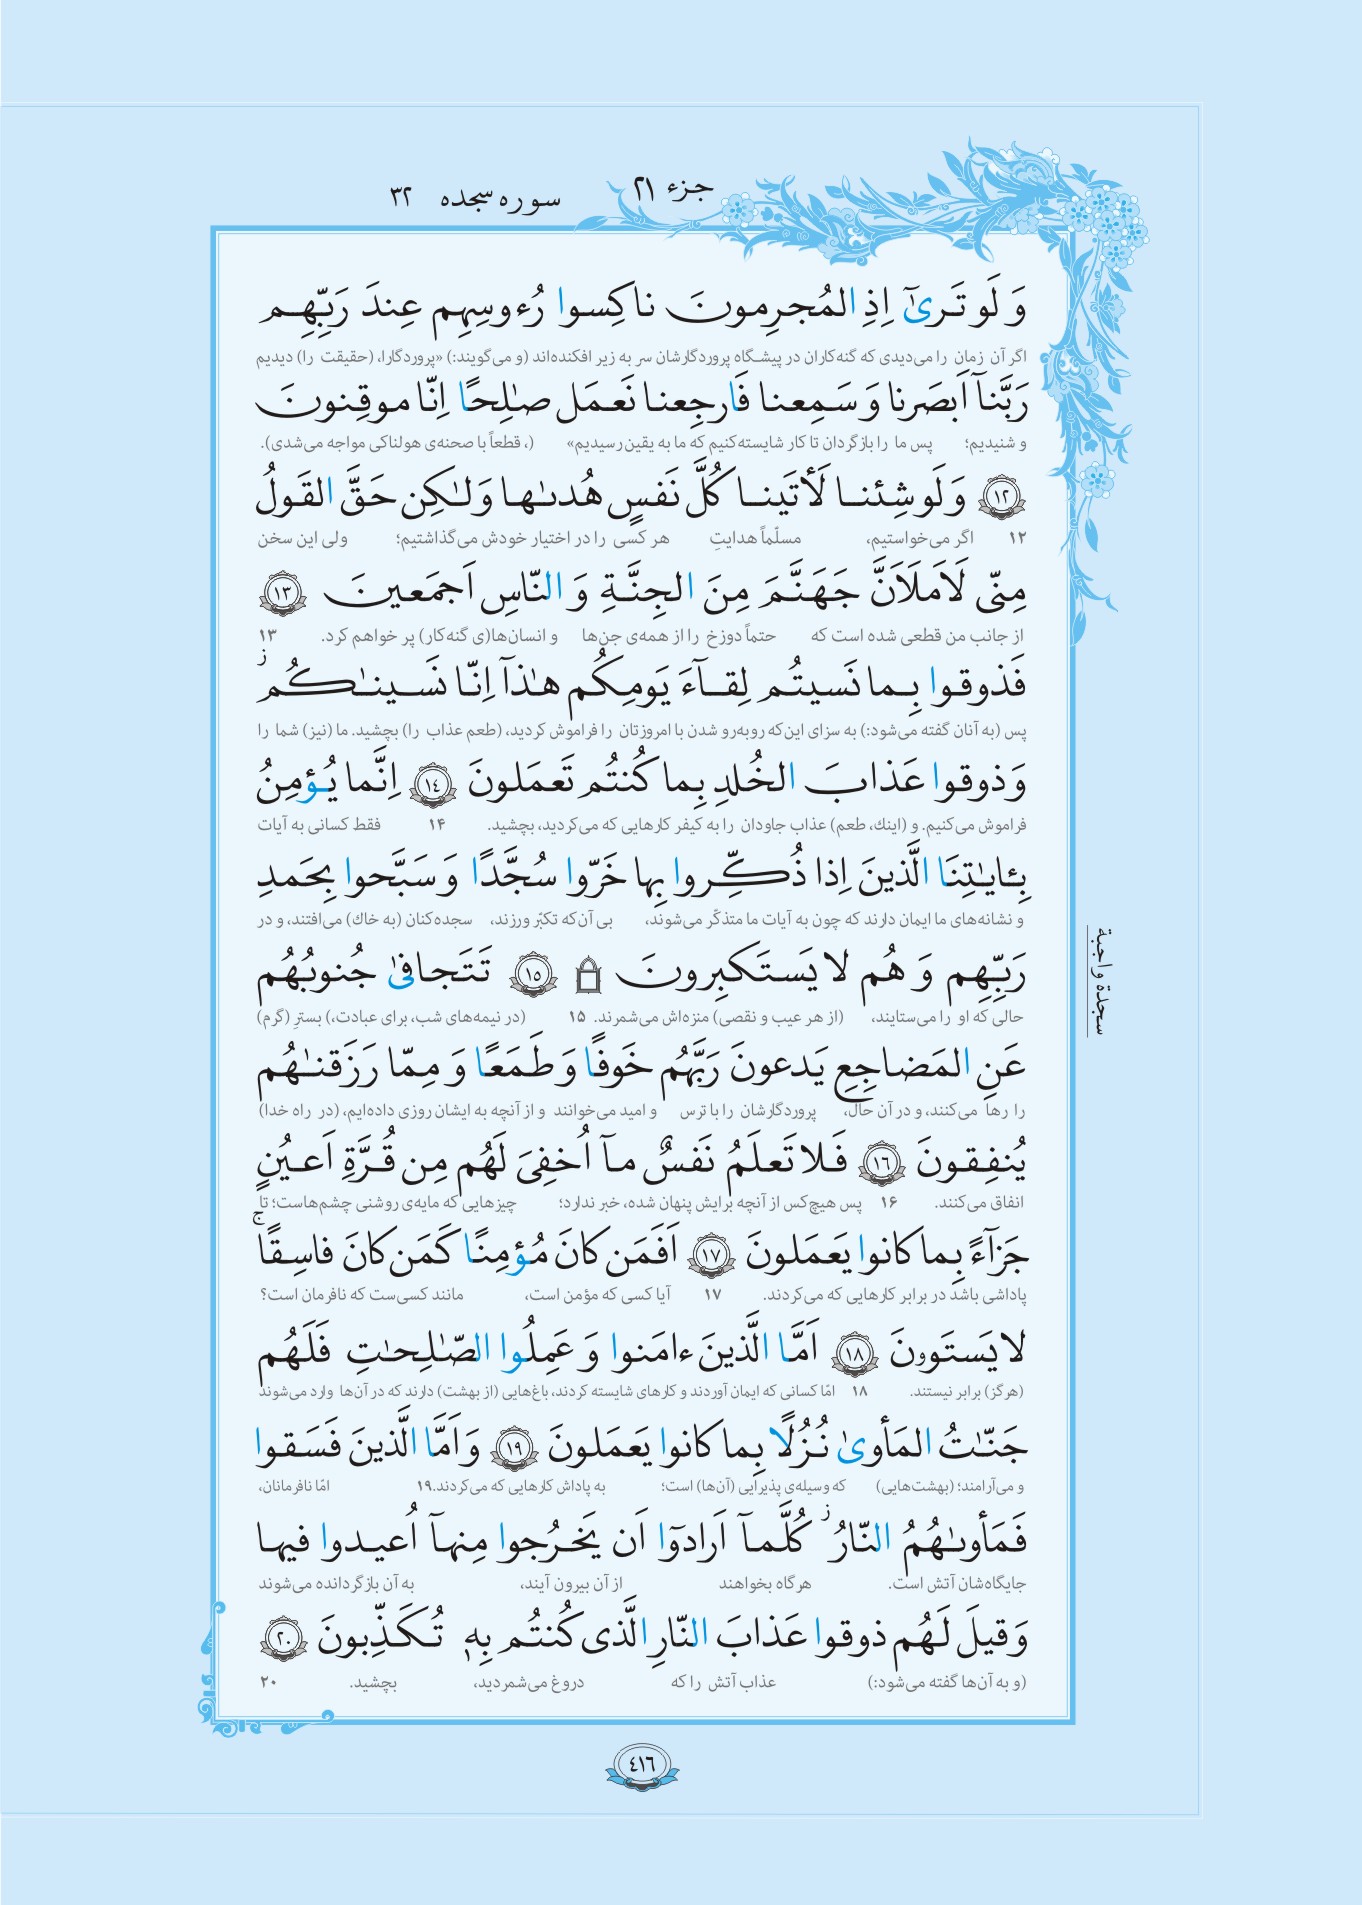 جزء ۲۱
سوره سجده ۳۲
وَ لَو تَرىٰٓ اِذِ المُجرِمونَ ناكِسوا رُءوسِهِم عِندَ رَبِّهِم
اگر آن زمان را می‌دیدی که گنه‌کاران در پیشگاه پروردگارشان سر به زیر افکنده‌اند (و می‌گویند:) «پروردگارا، (حقیقت را) دیدیم
رَبَّنآ اَبصَرنا وَ سَمِعنا فَارجِعنا نَعمَل صٰلِحًا اِنّا موقِنونَ
و شنیدیم؛ پس ما را بازگردان تا کار شایسته‌کنیم که ما به یقین رسیدیم» (، قطعاً با صحنه‌ی هولناکی مواجه می‌شدی).
﴿١٢﴾ وَ لَو شِئنا لَأتَينا كُلَّ نَفسٍ هُدىٰها وَ لٰكِن حَقَّ القَولُ
۱۲ اگر می‌خواستیم، مسلّماً هدایتِ هر کسی را در اختیار خودش می‌گذاشتیم؛ ولی این سخن
مِنّى لَاَملَاَنَّ جَهَنَّمَ مِنَ الجِنَّةِ وَ النّاسِ اَجمَعينَ ﴿١٣﴾
از جانب من قطعی شده است که حتماً دوزخ را از همه‌ی جن‌ها و انسان‌ها(ی گنه‌کار) پر خواهم کرد. ۱۳
فَذوقوا بِما نَسيتُم لِقآءَ يَومِكُم هٰذآ اِنّا نَسينٰكُم ز
پس (به آنان گفته می‌شود:) به سزای این‌که روبه‌رو شدن با امروزتان را فراموش کردید، (طعم عذاب را) بچشید. ما (نیز) شما را
وَ ذوقوا عَذابَ الخُلدِ بِما كُنتُم تَعمَلونَ ﴿١٤﴾ اِنَّما يُؤمِنُ
فراموش می‌کنیم. و (اینك، طعم) عذاب جاودان را به کیفر کارهایی که می‌کردید، بچشید. ۱۴ فقط کسانی به آیات
بِـٔايٰتِنَا الَّذينَ اِذا ذُكِّروا بِها خَرّوا سُجَّدًا وَ سَبَّحوا بِحَمدِ
و نشانه‌های ما ایمان دارند که چون به آیات ما متذکّر می‌شوند، بی آن‌که تکبّر ورزند، سجده‌کنان (به خاك) می‌افتند، و در
رَبِّهِم وَ هُم لا يَستَكبِرونَ ۩ ﴿١٥﴾ تَتَجافىٰ جُنوبُهُم
حالی که او را می‌ستایند، (از هر عیب و نقصی) منزه‌اش می‌شمرند. ۱۵ (در نیمه‌های شب، برای عبادت،) بسترِ (گرم)
سجدة واجبة
عَنِ المَضاجِعِ يَدعونَ رَبَّهُم خَوفًا وَ طَمَعًا وَ مِمّا رَزَقنٰهُم
را رها می‌کنند، و در آن حال، پروردگارشان را با ترس و امید می‌خوانند و از آنچه به ایشان روزی داده‌ایم، (در راه خدا)
يُنفِقونَ ﴿١٦﴾ فَلا تَعلَمُ نَفسٌ مآ اُخفِىَ لَهُم مِن قُرَّةِ اَعيُنٍ
انفاق می‌کنند. ۱۶ پس هیچ‌کس از آنچه برایش پنهان شده، خبر ندارد؛ چیزهایی که مایه‌ی روشنی چشم‌هاست؛ تا
جَزآءً بِما كانوا يَعمَلونَ ﴿١٧﴾ اَفَمَن كانَ مُؤمِنًا كَمَن كانَ فاسِقًا ج
پاداشی باشد در برابر کارهایی که می‌کردند. ۱۷ آیا کسی که مؤمن است، مانند کسی‌ست که نافرمان است؟
لا يَستَوونَ ﴿١٨﴾ اَمَّا الَّذينَ ءامَنوا وَ عَمِلُوا الصّٰلِحٰتِ فَلَهُم
(هرگز) برابر نیستند. ۱۸ امّا کسانی که ایمان آوردند و کارهای شایسته کردند، باغ‌هایی (از بهشت) دارند که در آن‌ها وارد می‌شوند
جَنّٰتُ المَأوىٰ نُزُلًا بِما كانوا يَعمَلونَ ﴿١٩﴾ وَ اَمَّا الَّذينَ فَسَقوا
و می‌آرامند؛ (بهشت‌هایی) که وسیله‌ی پذیرایی (آن‌ها) است؛ به پاداش کارهایی که می‌کردند. ۱۹ امّا نافرمانان،
فَمَأوىٰهُمُ النّارُ ز كُلَّمآ اَرادوٓا اَن يَخرُجوا مِنهآ اُعيدوا فيها
جایگاه‌شان آتش است. هرگاه بخواهند از آن بیرون آیند، به آن بازگردانده می‌شوند
وَ قيلَ لَهُم ذوقوا عَذابَ النّارِ الَّذى كُنتُم بِهٖ تُكَذِّبونَ ﴿٢٠﴾
(و به آن‌ها گفته می‌شود:) عذاب آتش را که دروغ می‌شمردید، بچشید. ۲۰
٤١٦